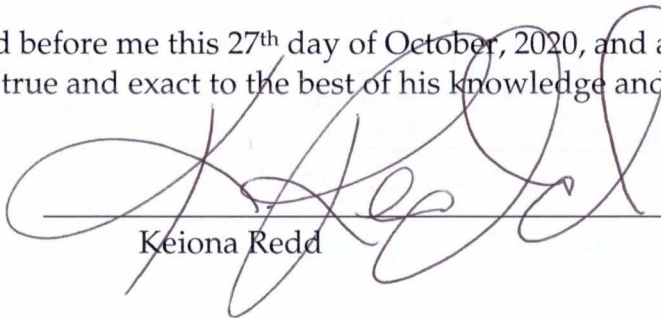 d before me this 27th day of October, 2020, and a
true and exact to the best of his knowledge and
K Redd
Keiona Redd